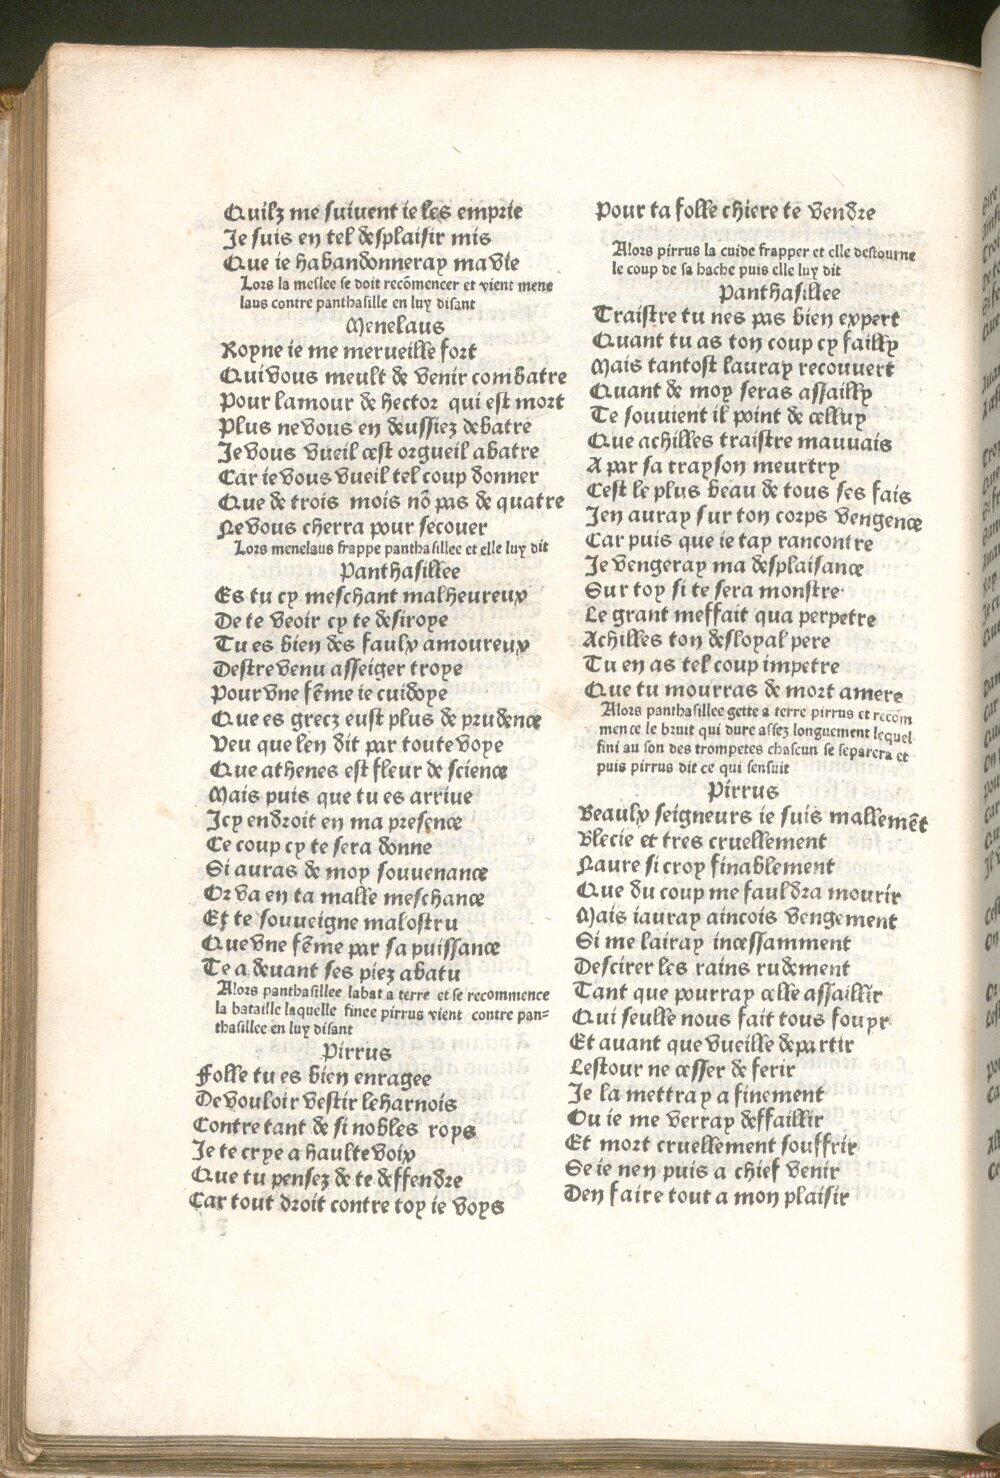 Quilz me suivent ie les emprie
Je suis en tel desplaisir mis
Que ie habandonneray ma vie
Lors la meslee se doit recõmencer et vient mene
laus contre panthasille en luy disant
Menelaus
Royne ie me merueille fort
Qui vous meult de venir combatre
Pour lamour de hector qui est mort
Plus ne vous en deussiez debatre
Je vous vueil cest orgueil abatre
Car ie vous vueil tel coup donner
Que de trois mois nõ pas de quatre
Ne vous cherra pour secouer
Lors menelaus frappe panthasillee et elle luy dit
Panthasillee
Es tu cy meschant malheureux
De te veoir cy te desiroye
Tu es bien des faulx amoureux
Destre venu asseiger troye
Pour vne fẽme ie cuidoye
Que es grecz eust plus de prudence
Veu que len dit par toute voye
Que athenes est fleur de science
Mais puis que tu es arriue
Icy endroit en ma presence
Ce coup cy te sera donne
Si auras de moy souuenance
Or va en ta malle meschance
Et te souueigne malostru
Que vne fẽme par sa puissance
Te a deuant ses piez abatu
Alors panthasillee labat a terre et se recommence
la bataille laquelle finee pirrus vient contre pan=
thasillee en luy disant
Pirrus
Folle tu es bien enragee
De vouloir vestir le harnois
Contre tant de si nobles roys
Je te crye a haulte voix
Que tu pensez de te deffendre
Car tout droit contre toy ie voys
Pour ta folle chiere te vendre
Alors pirrus la cuide frapper et elle destourne
le coup de sa hache puis elle luy dit
Panthasillee
Traistre tu nes pas bien expert
Quant tu as ton coup cy failly
Mais tantost lauray recouuert
Quant de moy seras assailly
Te souuient il point de celluy
Que achilles traistre mauuais
A par sa trayson meurtry
Cest le plus beau de tous ses fais
Jen auray sur ton corps vengence
Car puis que ie tay rancontre
Je vengeray ma desplaisance
Sur toy si te sera monstre
Le grant meffait qua perpetre
Achilles ton desloyal pere
Tu en as tel coup impetre
Que tu mourras de mort amere
Alors panthasillee gette a terre pirrus et recom
mence le bruit qui dure assez longuement lequel
fini au son des trompetes chascun se separera et
puis pirrus dit ce qui sensuit
Pirrus
Beaulx seigneurs ie suis mallemẽt
Blecie et tres cruellement
Naure si croy finablement
Que du coup me fauldra mourir
Mais iauray aincois vengement
Si me lairay incessamment
Descirer les rains rudement
Tant que pourray celle assaillir
Qui seulle nous fait tous fouyr
Et auant que vueille departir
Lestour ne cesser de ferir
Je la mettray a finement
Ou ie me verray deffaillir
Et mort cruellement souffrir
Se ie nen puis a chief venir
Den faire tout a mon plaisir